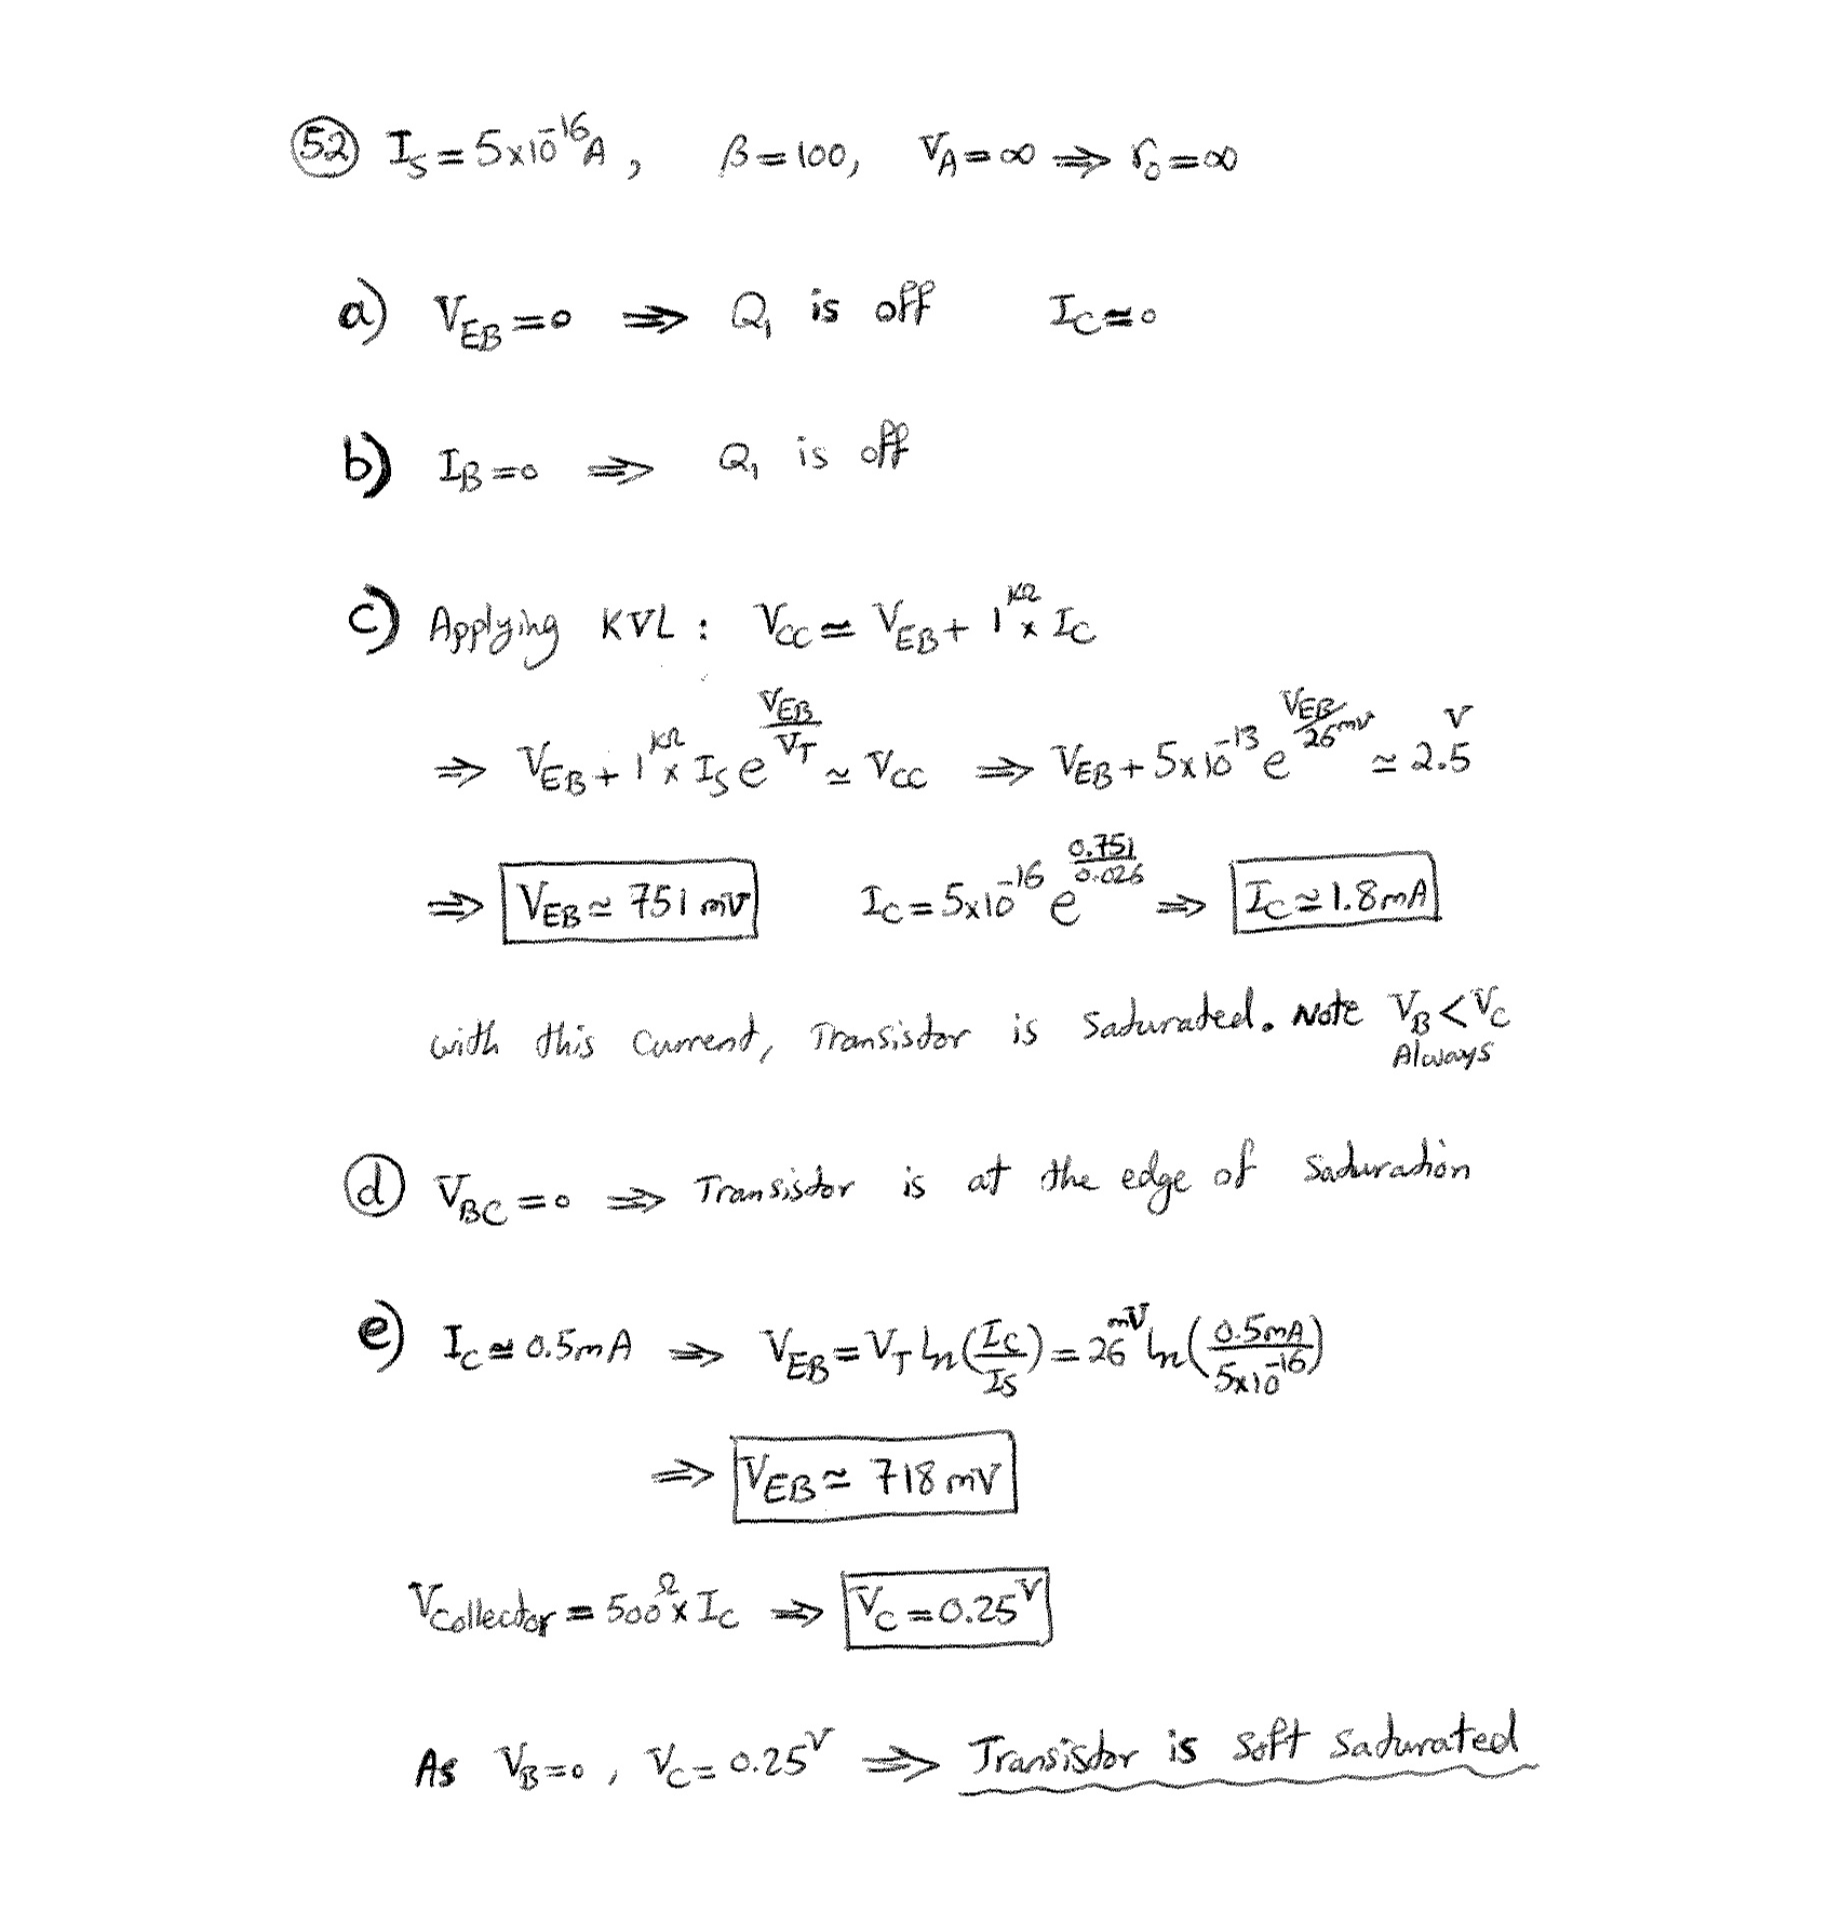 52 I_S = 5x10^-16 A, β = 100, V_A = ∞ ⇒ r_o = ∞
a) V_EB = 0 ⇒ Q_1 is off I_C ≃ 0
b) I_B = 0 ⇒ Q_1 is off
c) Applying KVL : V_CC ≃ V_EB + 1^KΩ x I_C
⇒ V_EB + 1^KΩ x I_S e^(V_EB/V_T) ≃ V_CC ⇒ V_EB + 5x10^-13 e^(V_EB/26mV) ≃ 2.5^V
⇒ V_EB ≃ 751 mV I_C = 5x10^-16 e^(0.751/0.026) ⇒ I_C ≃ 1.8mA
with this current, Transistor is Saturated. Note V_B < V_C
Always
d V_BC = 0 ⇒ Transistor is at the edge of Saturation
e) I_C ≃ 0.5mA ⇒ V_EB = V_T ln(I_C/I_S) = 26^mV ln(0.5mA/5x10^-16)
⇒ V_EB ≃ 718 mV
V_Collector = 500^Ω x I_C ⇒ V_C = 0.25^V
As V_B = 0, V_C = 0.25^V ⇒ Transistor is soft saturated